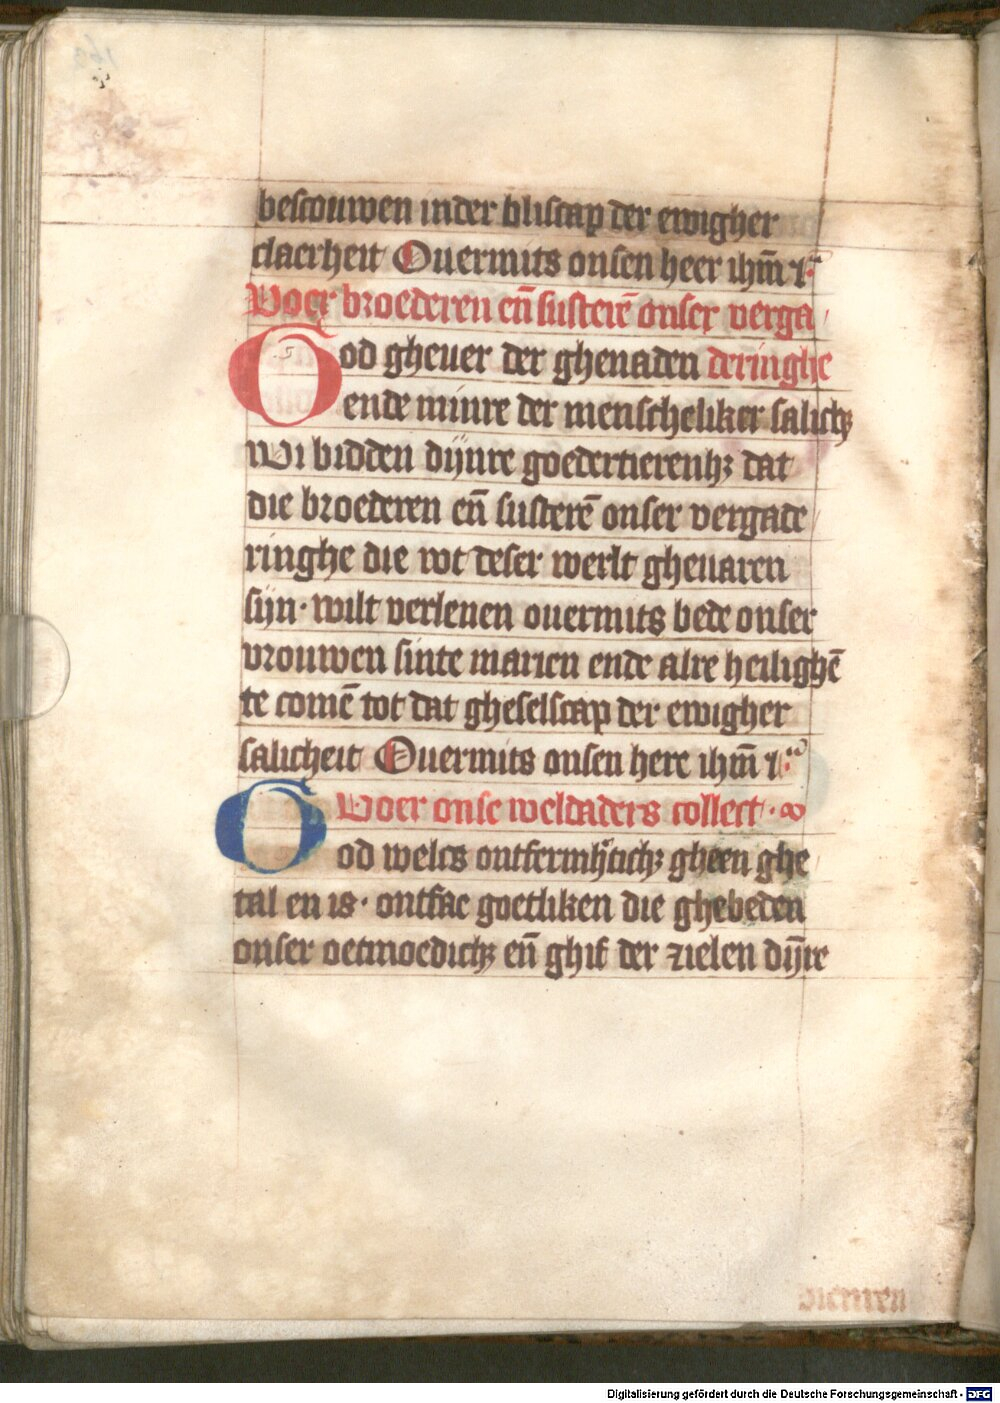 bescouwen inder bliscap der ewigher
claerheit Ouermits onsen heer ihm̄ x̄
Voer broederen en̄ susterē onser verga
God gheuer der ghenaden deringhe
ende minre der menscheliker salichꝫ
Wi bidden dijnre goedertierenhꝫ dat
die broederen en̄ susterē onser vergade
ringhe die wt deser werlt gheuaren
sijn· wilt verlenen ouermits bede onser
vrouwen sinte marien ende alre heilighē
te comē tot dat gheselscap der ewigher
salicheit Ouermits onsen here ihm̄ x̄
Voer onse weldaders collect·
God welcs ontfermh̄tichꝫ gheen ghe
tal en is· ontfac goetliken die ghebeden
onser oetmoedichꝫ en̄ ghif der zielen dijn̄re
dienren
Digitalisierung gefördert durch die Deutsche Forschungsgemeinschaft - DFG